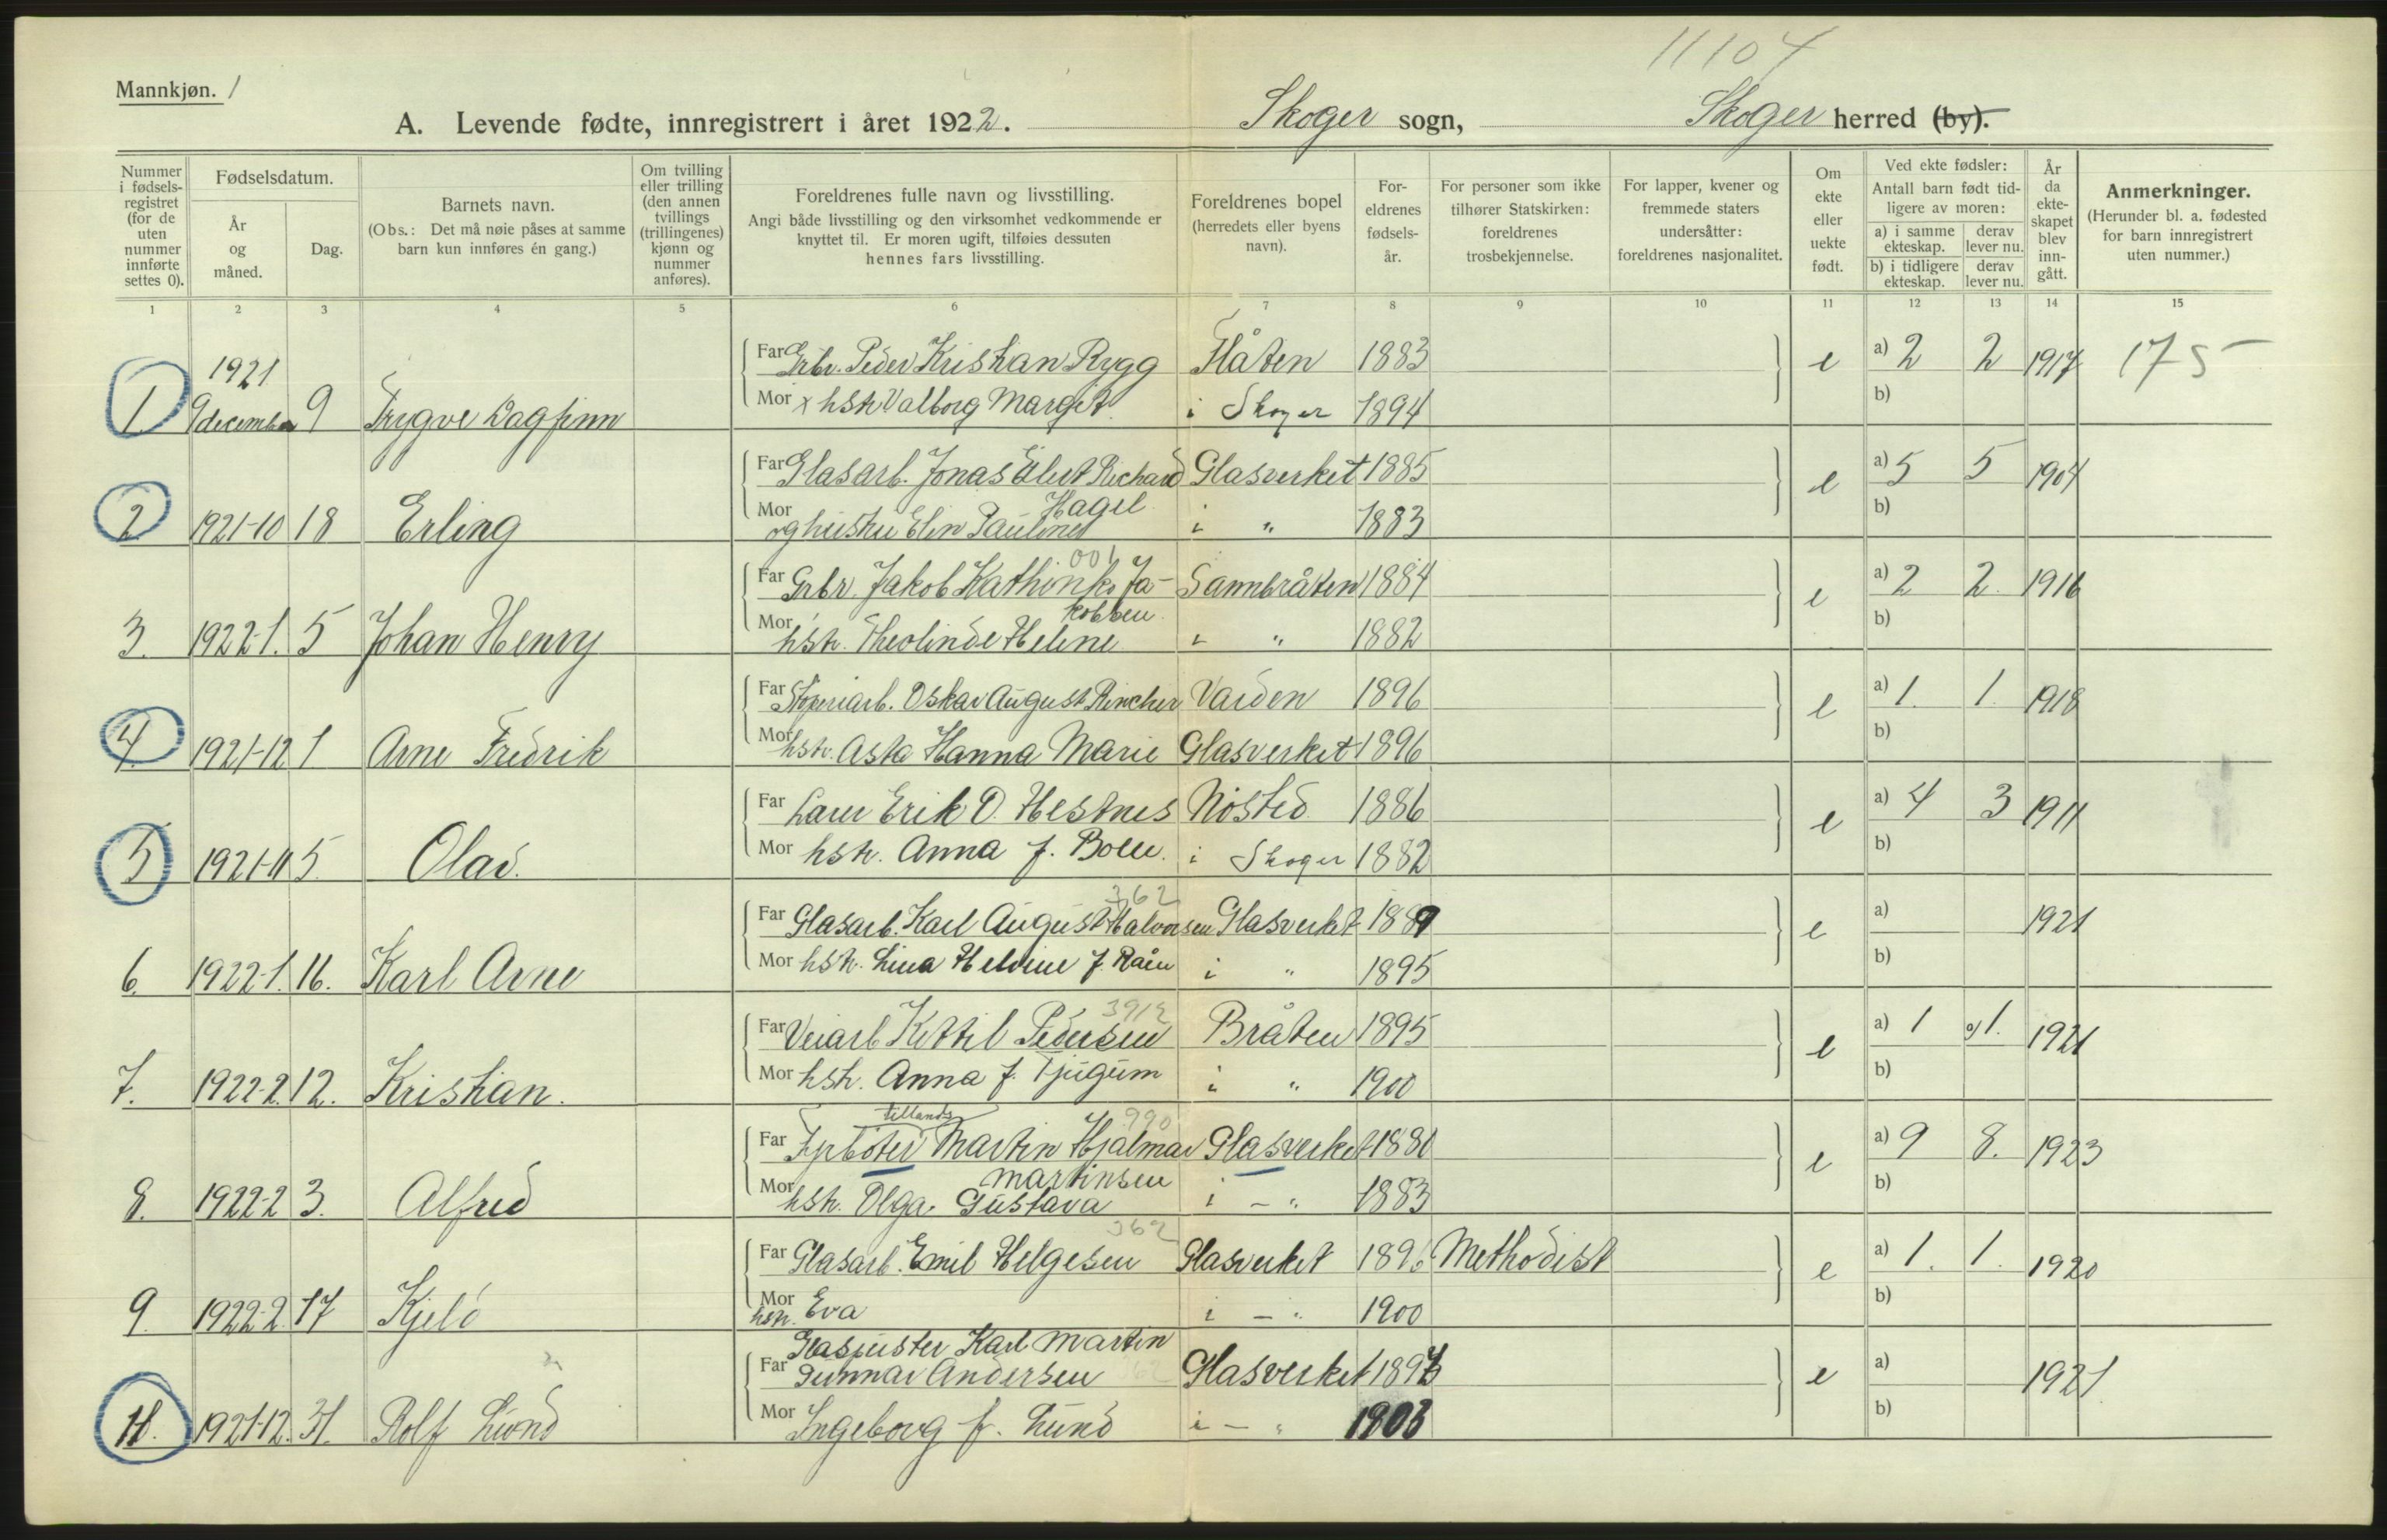 11104
Mannkjøn. 1
A. Levende fødte, innregistrert i året 1922. Skoger sogn, Skoger herred (by).
Nummer i fødsels-registret (for de uten nummer innførte settes 0).
Fødselsdatum.
År og måned.
Dag.
Barnets navn.
(Obs.: Det må nøie påses at samme barn kun innføres én gang.)
Om tvilling eller trilling (den annen tvillings (trillingenes) kjønn og nummer anføres).
Foreldrenes fulle navn og livsstilling.
Angi både livsstilling og den virksomhet vedkommende er knyttet til. Er moren ugift, tilføies dessuten hennes fars livsstilling.
Foreldrenes bopel (herredets eller byens navn).
For-eldrenes fødsels-år.
For personer som ikke tilhører Statskirken: foreldrenes trosbekjennelse.
For lapper, kvener og fremmede staters undersåtter: foreldrenes nasjonalitet.
Om ekte eller uekte født.
Ved ekte fødsler:
Antall barn født tid-ligere av moren:
a) i samme ekteskap. derav lever nu.
b) i tidligere ekteskap. derav lever nu.
År da ekte-skapet blev inn-gått.
Anmerkninger.
(Herunder bl. a. fødested for barn innregistrert uten nummer.)
1 2 3 4 5 6 7 8 9 10 11 12 13 14 15
1921
Far Grbr. Peder Kristian Rygg Flåten 1883 e a) 2 2 1917 175
1. december 9 Trygve Dagfinn Mor x hstr Valborg Margit i Skoger 1894 b)
Far Glasarb. Jonas Elert Richard Glasverket 1885 e a) 5 5 1904
Hagel
2 1921-10 18 Erling Mor og hustru Elin Pauline i " 1883 b)
001
Far Grbr. Jakob Kathinko Ja- Sannbråten 1884 e a) 2 2. 1916
kobsen
3. 1922-1. 5 Johan Henry Mor hstr. Theolinde Helene i " 1882 b)
Far Oskar August Rincher Varden 1896 e a) 1. 1. 1918
4. 1921-12 1 Arne Fredrik Mor hstr. Asta Hanna Marie Glasverket 1896 b)
Far Lærer Erik O. Hestnes Nøsted 1886 e a) 4 3 1911
5 1921-11 5. Olav. Mor hstr. Anna f. i Skoger 1882 b)
362
Far Glasarb. Karl August Halvorsen Glasverket 1889 e a) 1921
6. 1922-1. 16. Karl Arne Mor hstr. Lina Heldine f. Råen i " 1895 b)
3912
Far Veiarb Kittil Pedersen Bråten 1895 e a) 1 1. 1921
7. 1922-2. 12. Kristian. Mor hstr. Anna f. Tjugum i " 1900 b)
tillands 990
Far Fyrbøter Martin Hjalmar Glasverket 1880 e a) 9 8. 1923
Martinsen
8. 1922-2 3. Alfred Mor hstr. Olga Gustava i - " 1883 b)
362
Far Glasarb. Emil Helgesen Glasverket 1896 Methodist e a) 1. 1. 1920
9. 1922-2. 17 Kjeld Mor hstr. Eva i - " 1900 b)
Glaspuster Karl Martin
Far Gunnar Andersen 362 Glasverket 1897 e a) 1921
1921-12. 31. Rolf Lund Mor Ingeborg f. Lund i - " 1903 b)